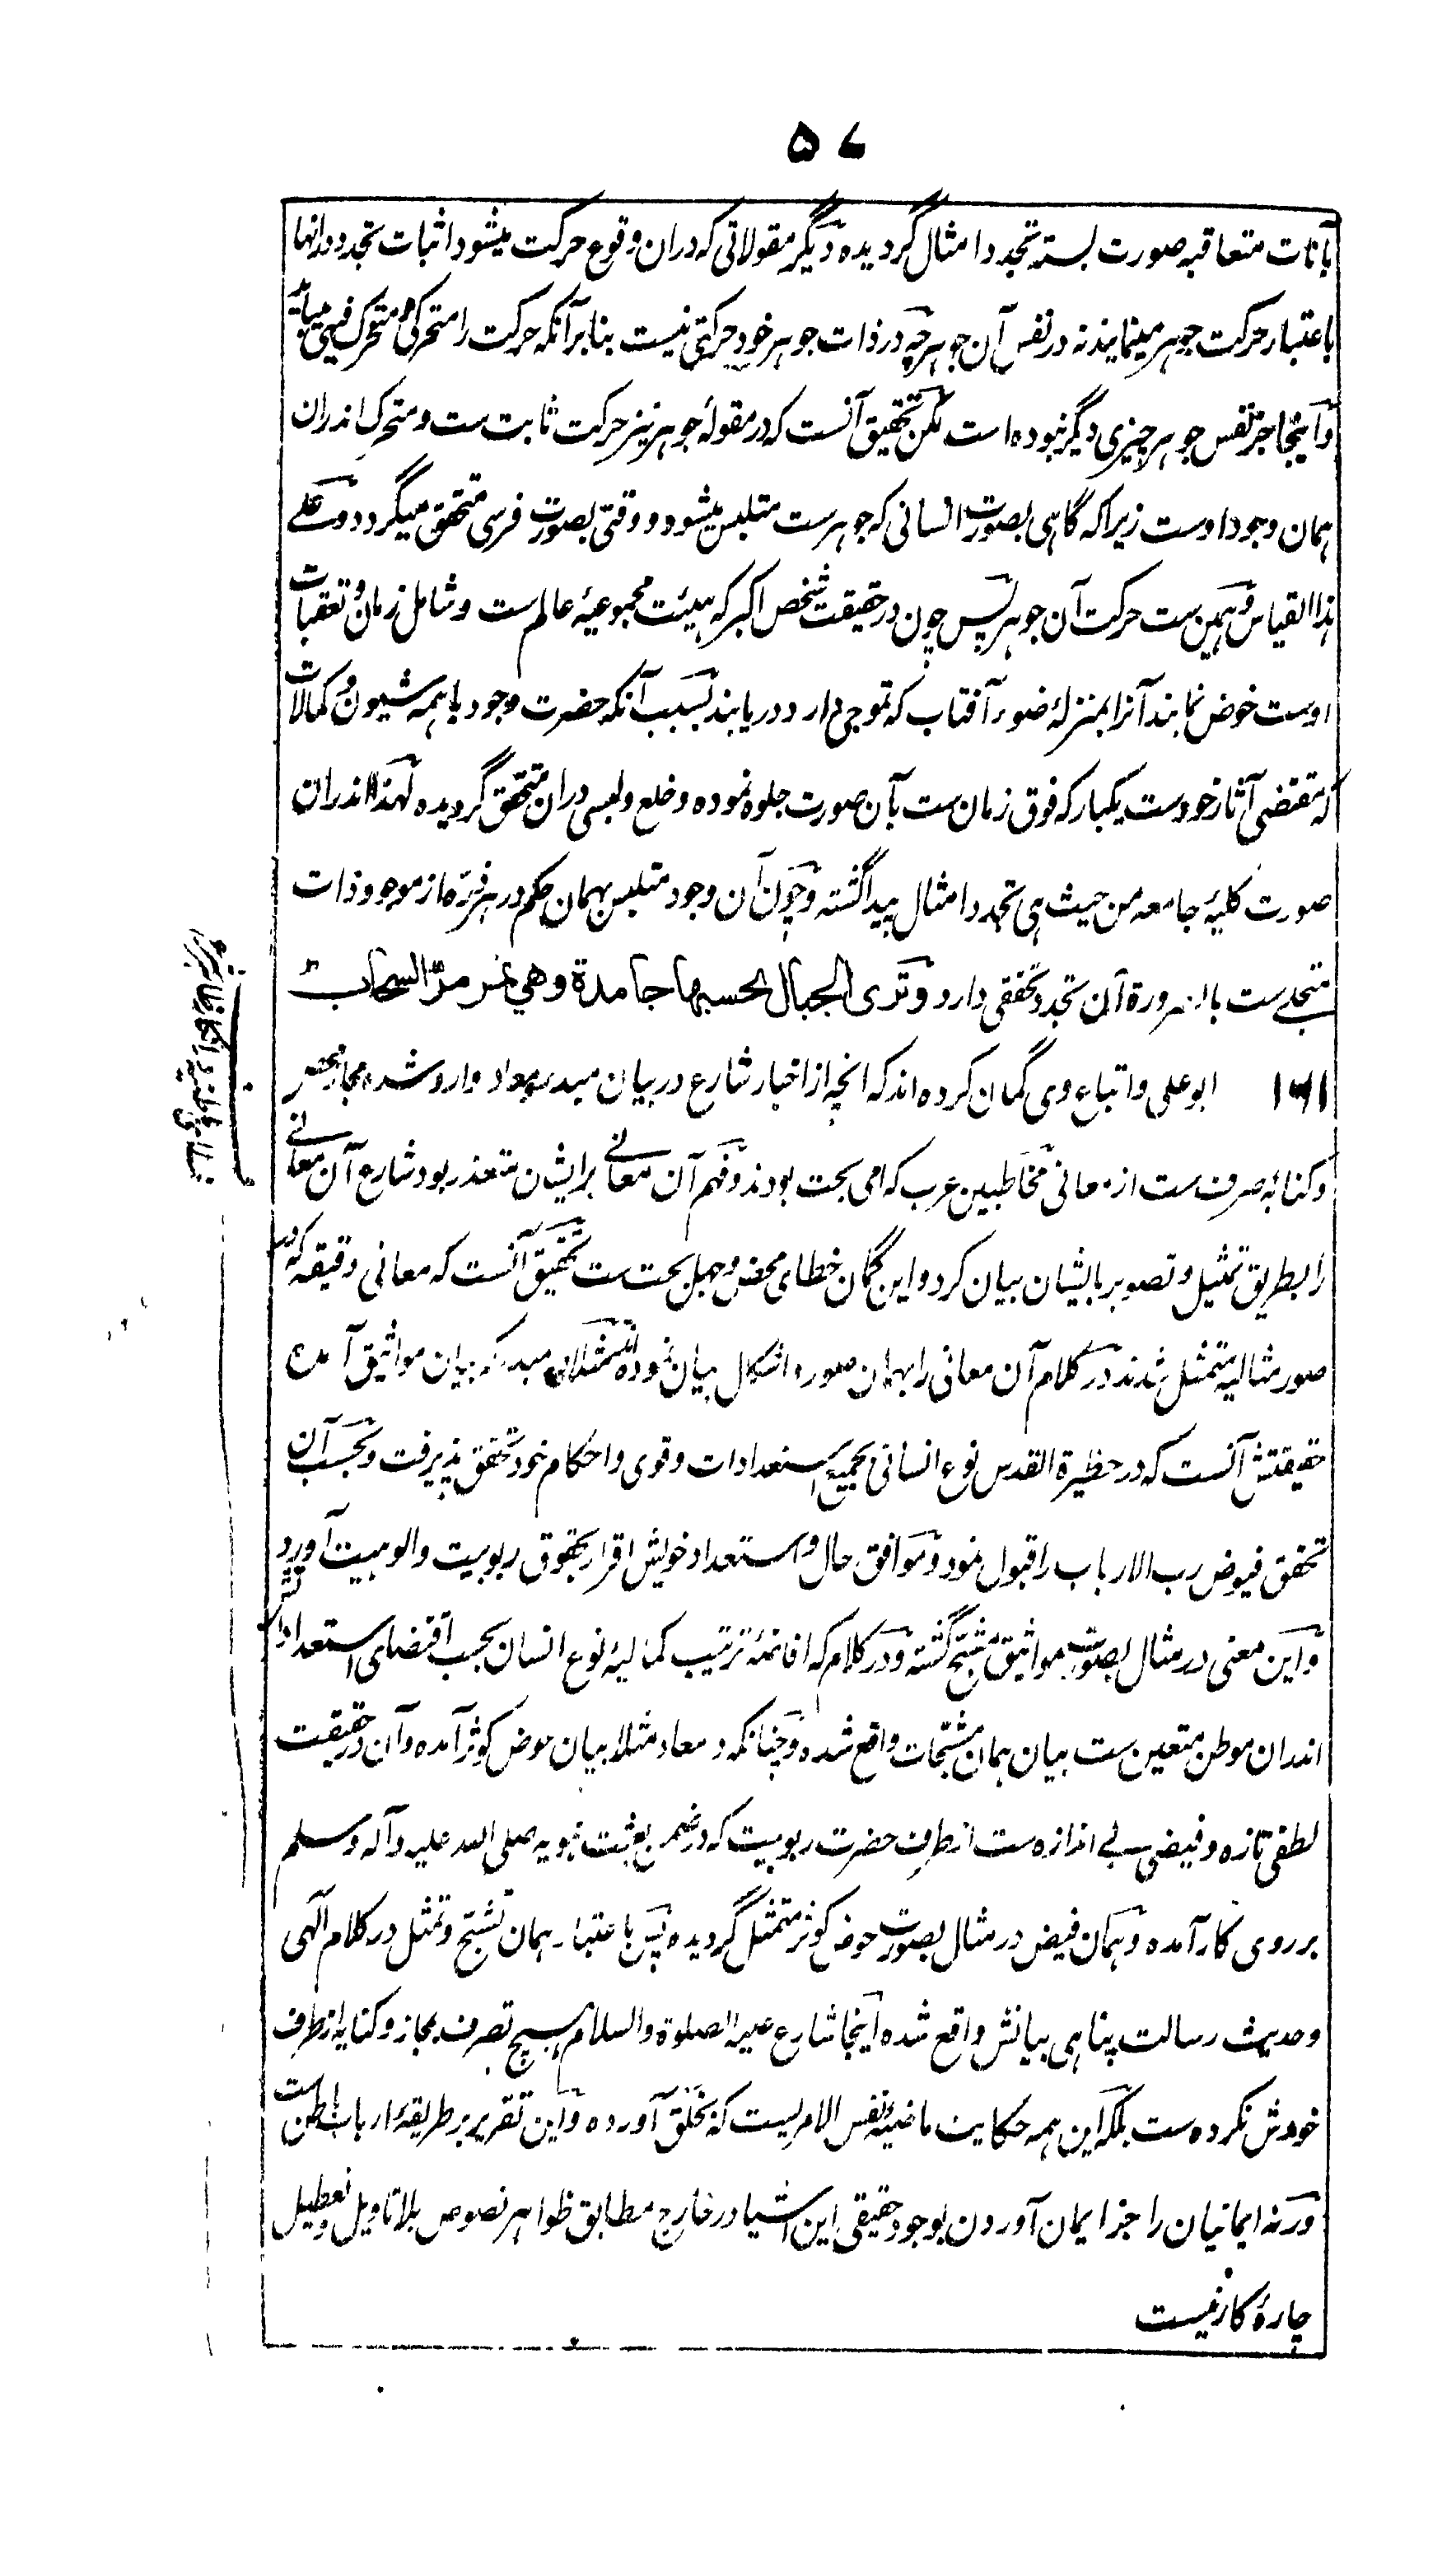 ۵۷
بآنات متعاقبه صورت بسته تجدد امثال گردیده دیگر مقولاتی که دران وقوع حرکت میشود اثبات تجدد درانها
باعتبار حرکت جوهر مینمایند نه در نفس آن جوهر چه در ذات جوهر خود حرکتی نیست بنابر آنکه حرکت را متحرکی و متحرک فیهی میباید
و اینجا جز نفس جوهر چیزی دیگر نبوده است لکن تحقیق آنست که در مقولهٔ جوهر نیز حرکت ثابت ست و متحرک اندران
همان وجود اوست زیرا که گاهی بصورت انسانی که جوهرست متلبس میشود و وقتی بصورت فرسی متحقق میگردد و علی
هذا القیاس و همین ست حرکت آن جوهر پس چون در حقیقت شخص اکبر که هیئت مجموعیهٔ عالم ست و شامل زمان و تعقبات
اوست خوض نمایند آنرا بمنزلهٔ ضوء آفتاب که تموجی دارد دریابند بسبب آنکه حضرت وجود با همه شیون و کمالات
که مقتضی آثار خودست یکبار که فوق زمان ست بآن صورت جلوه نموده و خلع و لبسی دران متحقق گردیده لهذا اندران
صورت کلیهٔ جامعه من حیث هی تجدد امثال پیدا گشته و چون آن وجود متلبس بهمان حکم در هر ذره از موجودات
متجلی ست بالضرورة آن تجدد تحققی دارد وتری الجبال تحسبها جامدة وهی تمر مرّ السحاب
۱۶۱ ابو علی و اتباع وی گمان کرده‌اند که انچه از اخبار شارع در بیان مبدء و معاد وارد شده مجاز محض
و کنایهٔ صرف ست از معانی مخاطبین عرب که امی بحت بودند و فهم آن معانی برایشان متعذر بود شارع آن معانی
را بطریق تمثیل و تصویر بایشان بیان کرد و این گمان خطای محض و جهل بحت ست تحقیق آنست که معانی دقیقه که در
صور مثالیه متمثل شدند در کلام آن معانی را بهمان صور و اشکال بیان نموده‌اند مثلا در مبدء که بیان مواثیق آمده
حقیقتش آنست که در حظیرة القدس نوع انسانی بجمیع استعدادات و قوی و احکام خود تحقق پذیرفت و بحسب آن
تحقق فیوض رب الارباب را قبول نمود و موافق حال و استعداد خویش اقرار بحقوق ربوبیت و الوهیت آورد
و این معنی در مثال بصورت مواثیق متشبح گشته و در کلام که افاضهٔ ترتیب کمالیهٔ نوع انسان بحسب اقتضای استعداداتش
اندران موطن متعین ست بیان همان متشبحات واقع شده و چنانکه در معاد مثلا بیان حوض کوثر آمده و آن در حقیقت
لطفی تازه و فیضی بی اندازه ست از طرف حضرت ربوبیت که در ضمن بعثت نبویه صلی الله علیه وآله وسلم
بر روی کار آمده و همان فیض در مثال بصورت حوض کوثر متمثل گردیده پس باعتبار همان تشبح و تمثل در کلام الهی
و حدیث رسالت پناهی بیانش واقع شده اینجا شارع علیه الصلوة والسلام هیچ تصرف بمجاز و کنایه از طرف
خودش نکرده ست بلکه این همه حکایت ما فی نفس الامریست که بخلق آورده و این تقریر بر طریقهٔ ارباب باطن ست
ورنه ایمانیان را جز ایمان آوردن بوجود حقیقی این اشیا در خارج مطابق ظواهر نصوص بلا تاویل و تعطیل
چارهٔ کار نیست